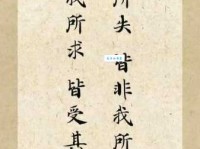 所失 皆非我所
我所求 皆受其